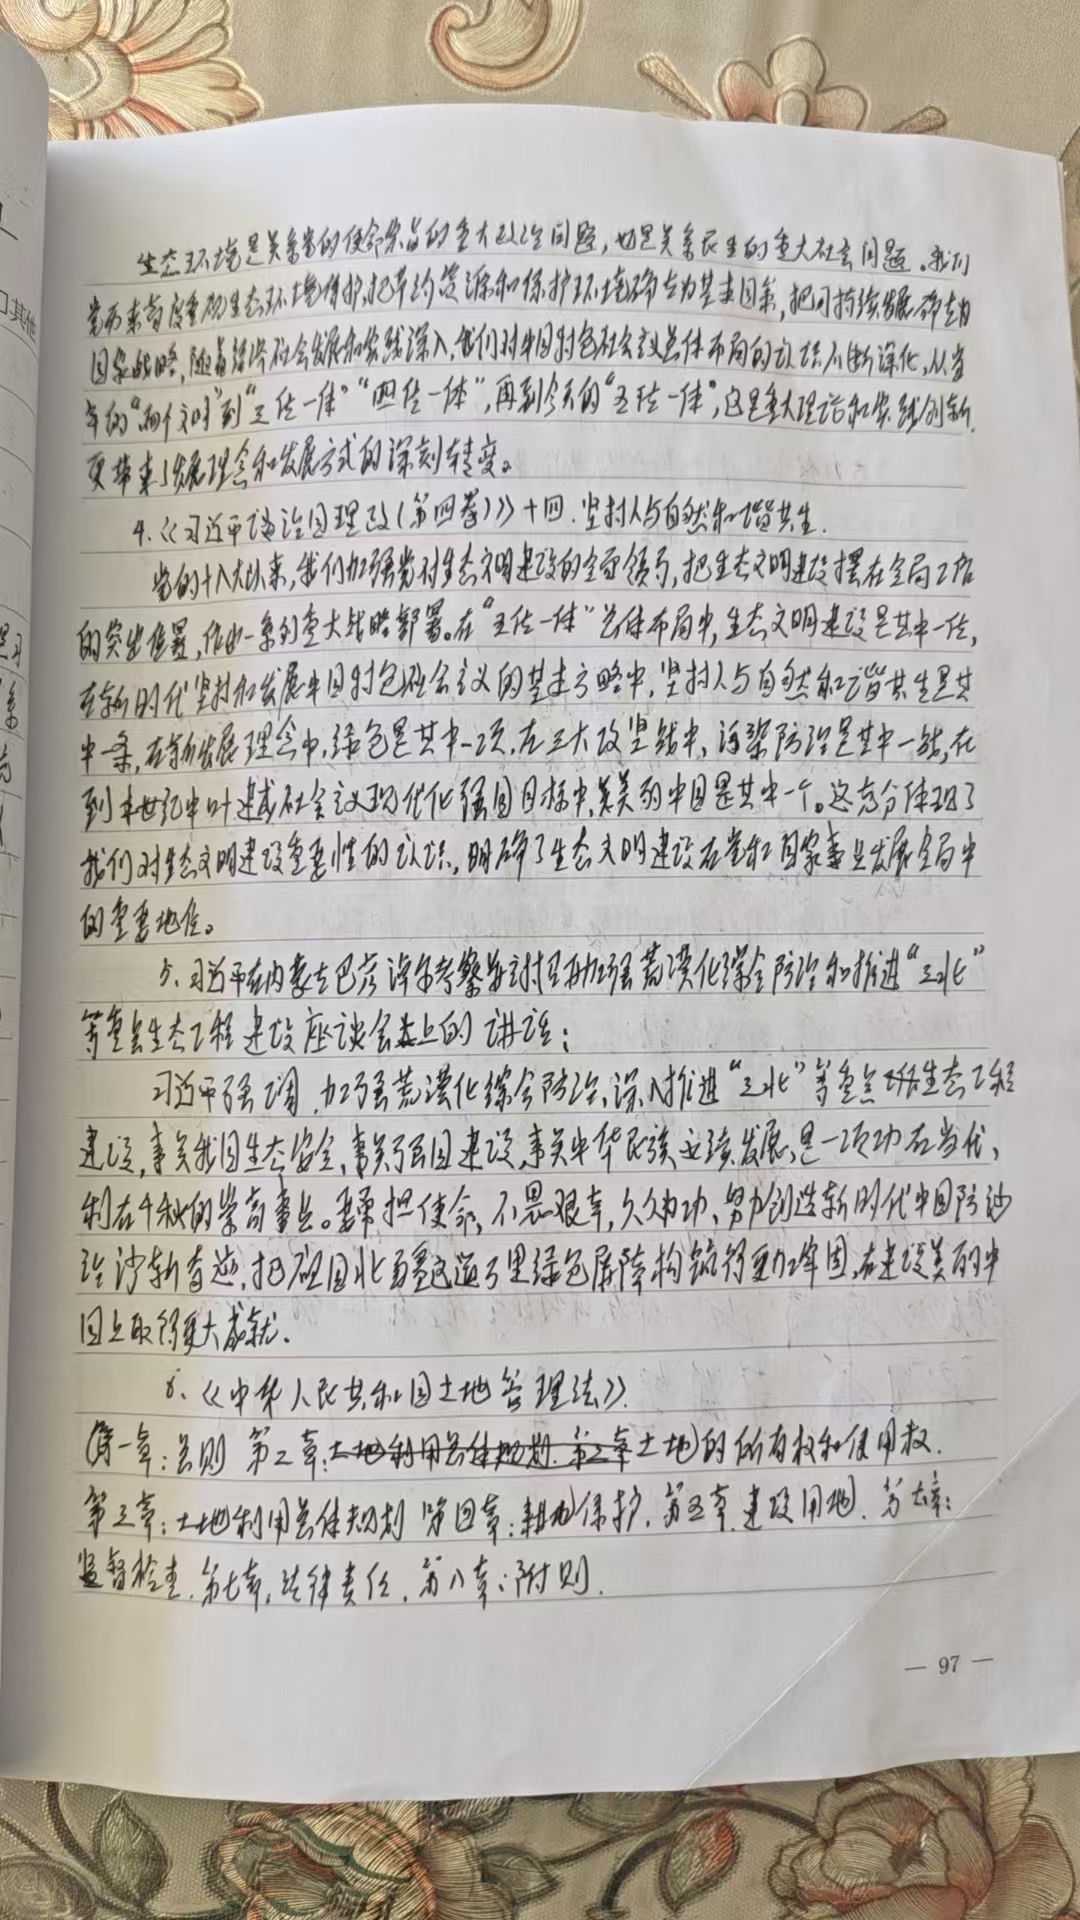 生态环境是关系党的使命宗旨的重大政治问题，也是关系民生的重大社会问题。我们
党历来高度重视生态环境保护，把节约资源和保护环境确立为基本国策，把可持续发展确立为
国家战略，随着经济社会发展和实践深入，我们对中国特色社会主义总体布局的认识不断深化，从当
年的“两个文明”到“三位一体”“四位一体”，再到今天的“五位一体”，这是重大理论和实践创新，
更带来了发展理念和发展方式的深刻转变。
4.《习近平谈治国理政（第四卷）》十四.坚持人与自然和谐共生.
党的十八大以来，我们加强党对生态文明建设的全面领导，把生态文明建设摆在全局工作
的突出位置，作出一系列重大战略部署。在“五位一体”总体布局中，生态文明建设是其中一位，
在新时代坚持和发展中国特色社会主义的基本方略中，坚持人与自然和谐共生是其
中一条，在新发展理念中，绿色是其中一项，在三大攻坚战中，污染防治是其中一战，在
到本世纪中叶建成社会主义现代化强国目标中，美丽中国是其中一个。这充分体现了
我们对生态文明建设重要性的认识，明确了生态文明建设在党和国家事业发展全局中
的重要地位。
5、习近平在内蒙古巴彦淖尔考察并主持召开加强荒漠化综合防治和推进“三北”
等重点生态工程建设座谈会上的讲话：
习近平强调，加强荒漠化综合防治，深入推进“三北”等重点生态工程
建设，事关我国生态安全，事关强国建设，事关中华民族永续发展，是一项功在当代，
利在千秋的崇高事业。要勇担使命，不畏艰辛，久久为功，努力创造新时代中国防沙
治沙新奇迹，把祖国北疆这道万里绿色屏障构筑得更加牢固，在建设美丽中
国上取得更大成就.
6、《中华人民共和国土地管理法》.
（第一章：总则 第二章：土地利用总体规划 第三章土地的所有权和使用权.
第三章：土地利用总体规划 第四章：耕地保护. 第五章.建设用地. 第六章：
监督检查.第七章，法律责任.第八章：附则.
— 97 —
其他